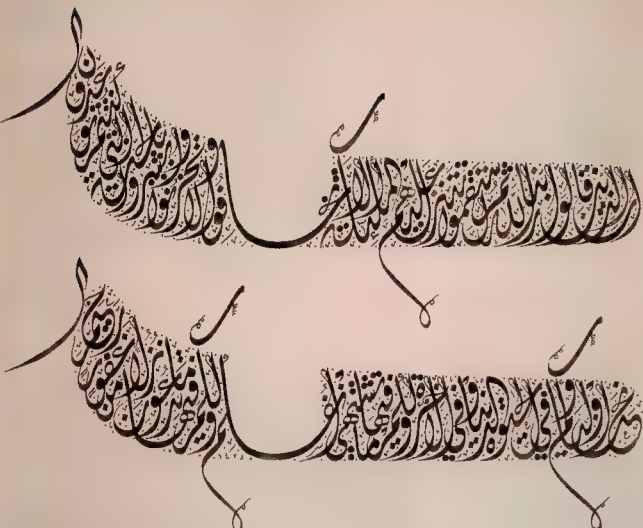 إن الذين قالوا ربنا الله ثم استقاموا تتنزل عليهم الملائكة ألا تخافوا ولا تحزنوا وأبشروا بالجنة التي كنتم توعدون
نحن أولياؤكم في الحيوة الدنيا وفي الآخرة ولكم فيها ما تشتهي أنفسكم ولكم فيها ما تدعون نزلا من غفور رحيم